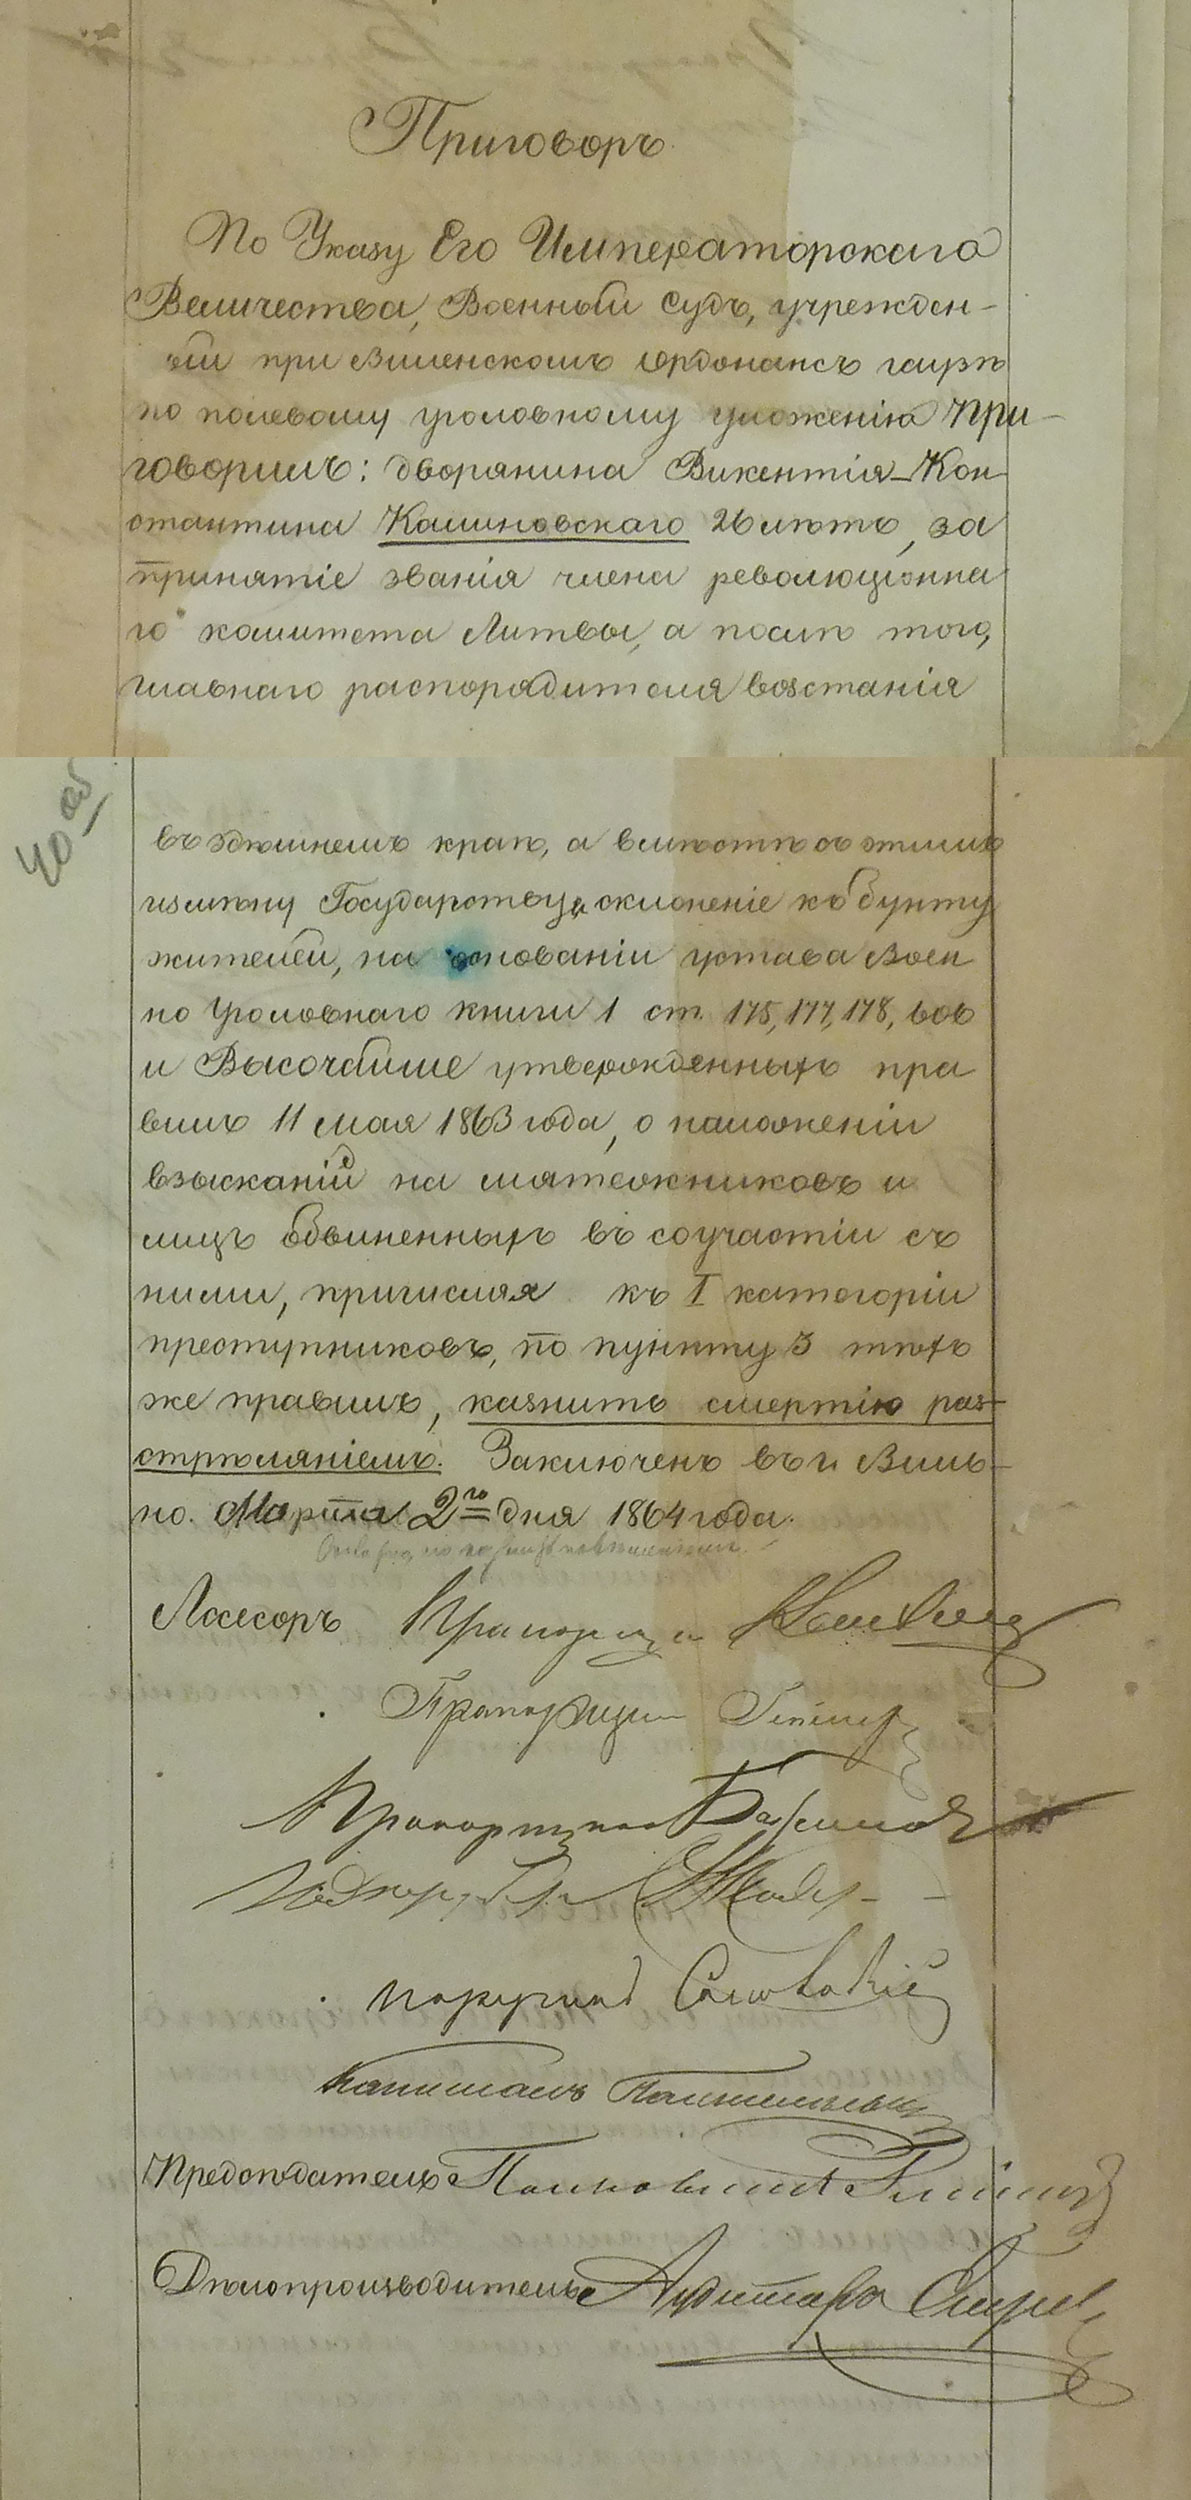 Приговоръ
По Указу Его Императорскаго
Величества, Военный Судъ, учрежден-
ый при Виленскомъ Ордонансъ гаузѣ
по полевому уголовному уложенію при-
говорилъ: дворянина Викентія-Кон
стантина Калиновскаго 26 лѣтъ, за
принятіе званія члена революціонна
го комитета Литвы, а послѣ того,
главнаго распорядителя возстанія
40 об
въ здѣшнемъ краѣ, а вмѣстѣ съ этимъ
измѣну Государству и склоненіе къ бунту
жителей, на основаніи устава Воен
но Уголовнаго книги 1 ст. 175, 177, 178,
и Высочайше утвержденныхъ пра
вилъ 11 мая 1863 года, о наложеніи
взысканій на мятежниковъ и
лицъ обвиненныхъ въ соучастіи съ
ними, причисляя къ I категоріи
преступниковъ, по пункту 3 тѣхъ
же правилъ, казнить смертію раз-
стрѣляніемъ. Заключенъ въ г. Виль-
но. Марта 2го дня 1864 года.
Ассесоръ Прапорщикъ
Прапорщикъ
Прапорщикъ
Подпоручикъ
Поручикъ
Капитанъ
Предсѣдатель Полковникъ
Дѣлопроизводитель Аудиторъ